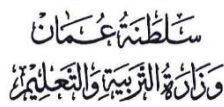 سَلْطَنَةُ عُمَان
وَزَارَةُ التَّرْبِيَةِ وَالتَّعْلِيمِ